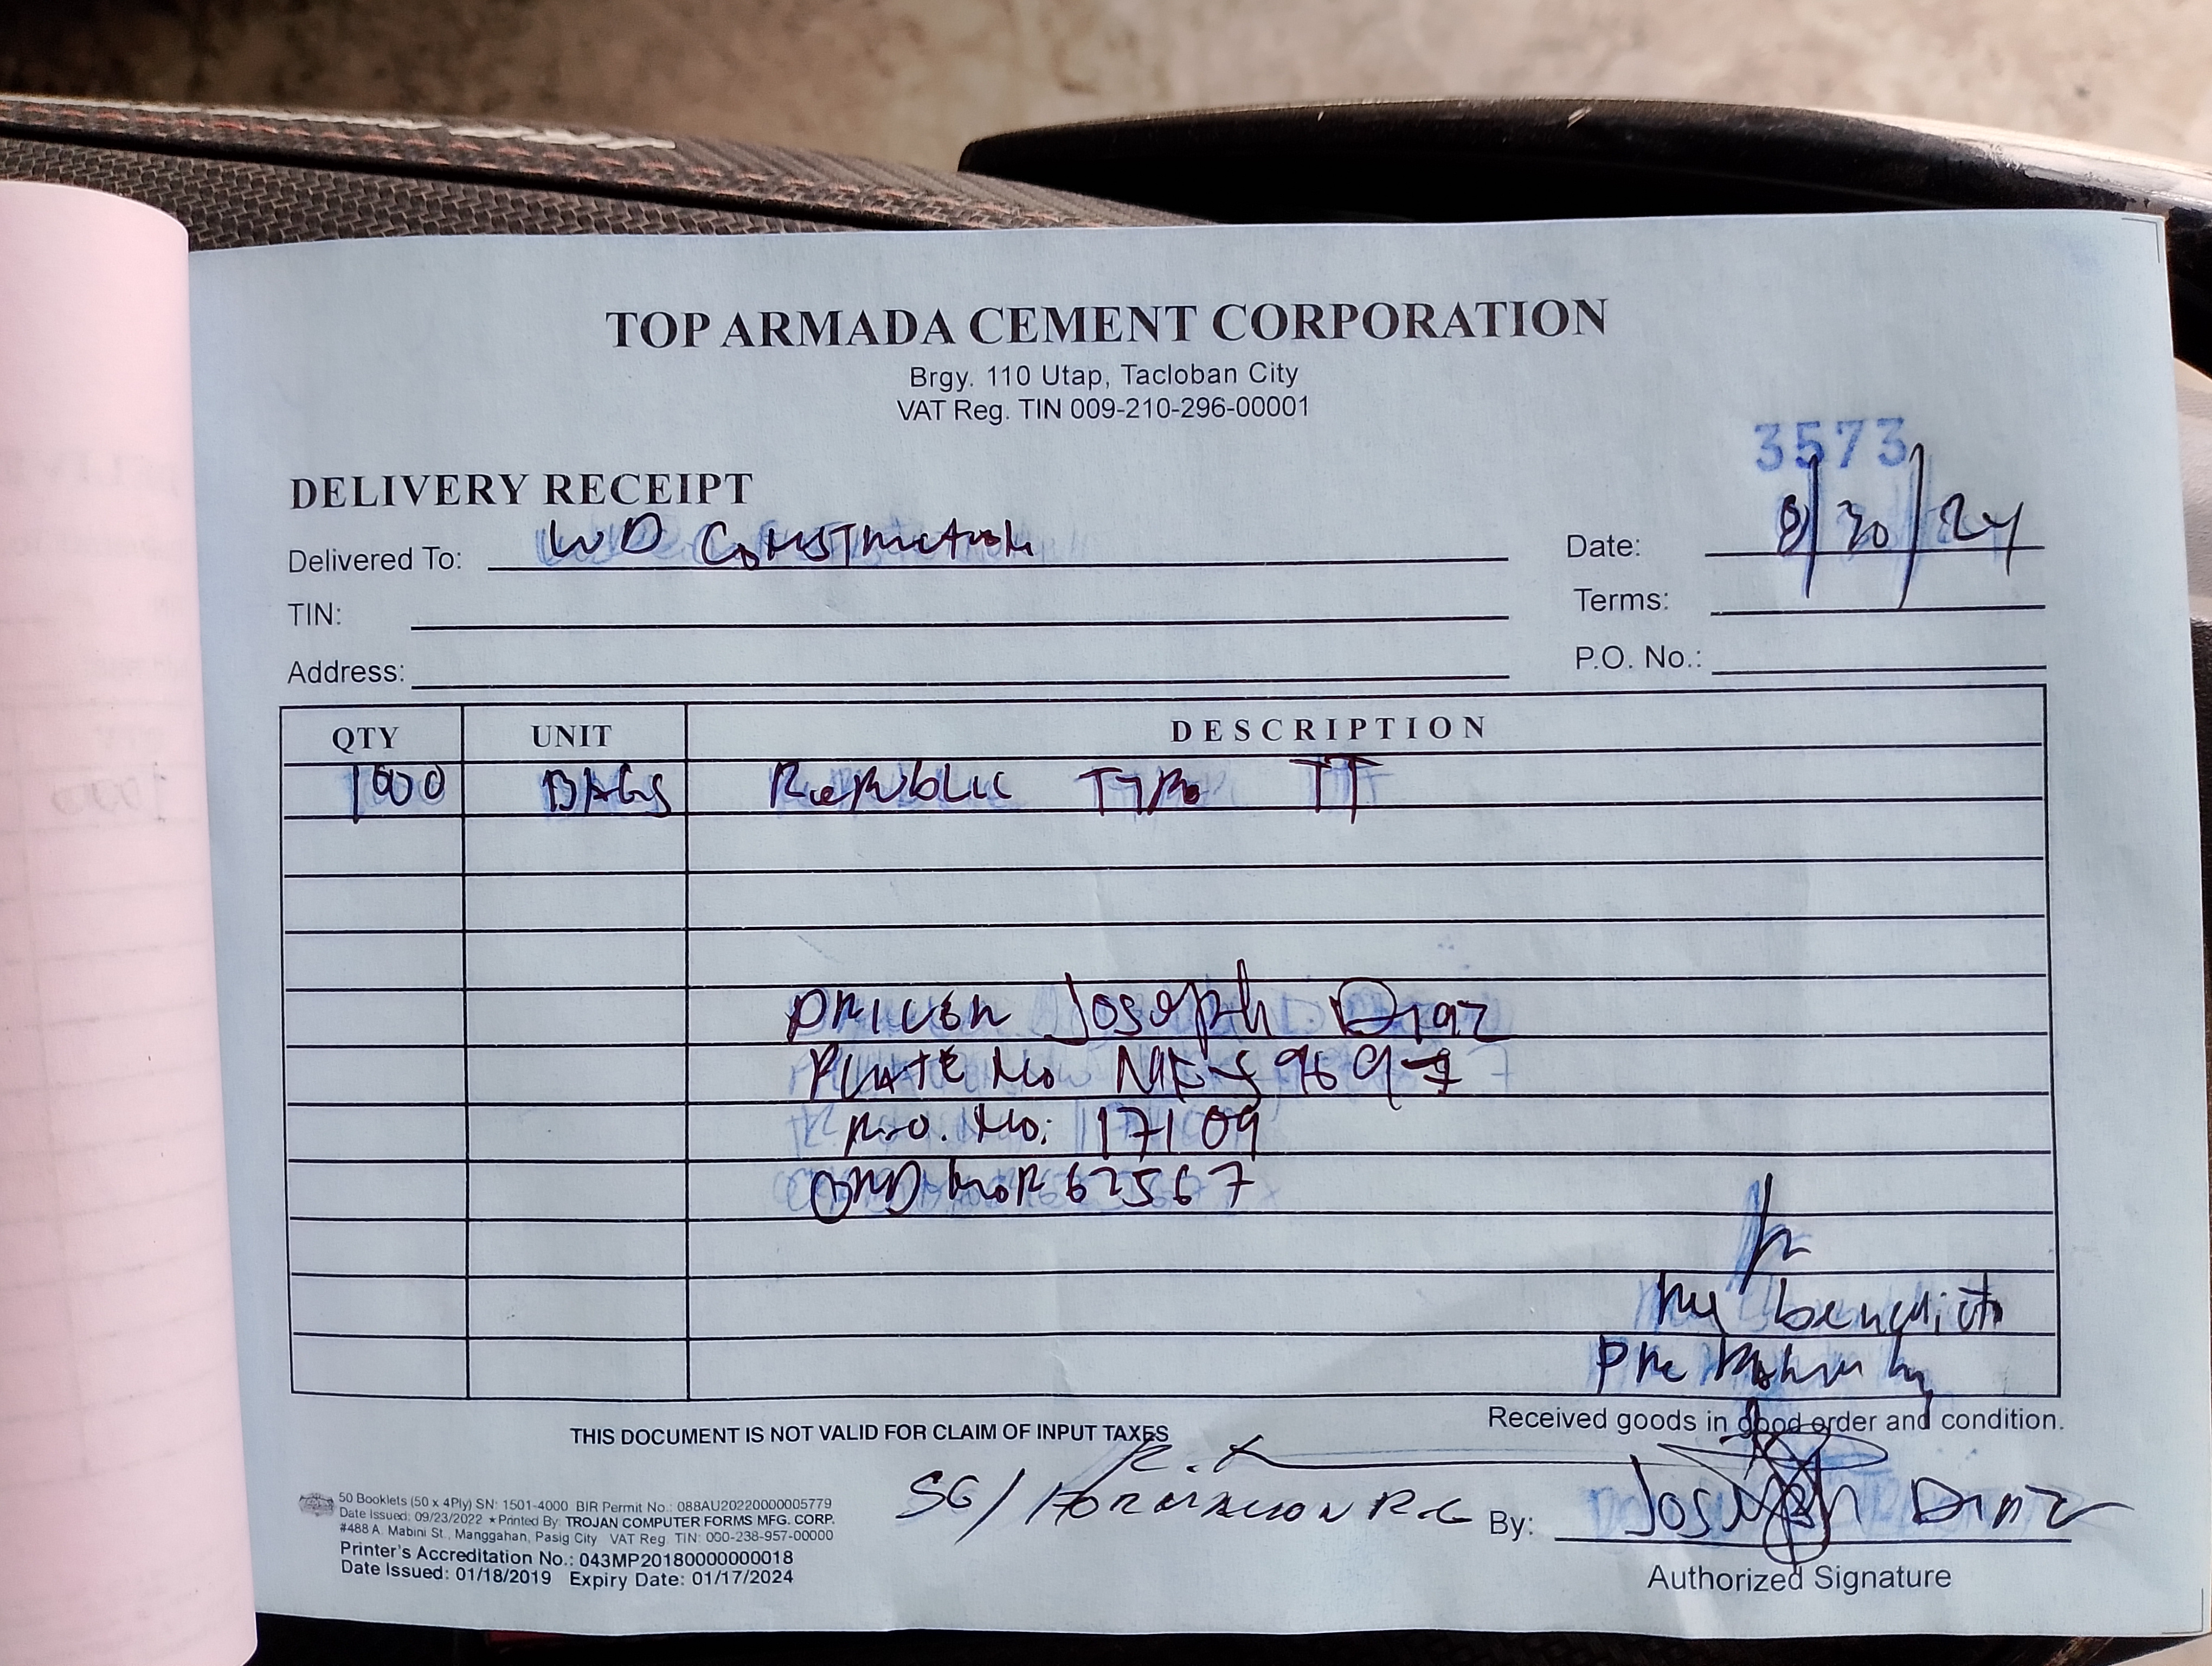 TOP ARMADA CEMENT CORPORATION
Brgy. 110 Utap, Tacloban City
VAT Reg. TIN 009-210-296-00001
3573
DELIVERY RECEIPT
Delivered To: WD Construction
Date: 8/30/24
TIN:
Terms:
Address:
P.O. No.:
QTY UNIT DESCRIPTION
1000 BAGS Republic Type TT
DRIVER Joseph Diaz
PLATE No
No: 17109
62567
benedicto
THIS DOCUMENT IS NOT VALID FOR CLAIM OF INPUT TAXES
Received goods in good order and condition.
SG/
By: Joseph Diaz
Authorized Signature
50 Booklets (50 x 4Ply) SN: 1501-4000 BIR Permit No.: 088AU20220000005779
Date Issued: 09/23/2022 ★Printed By: TROJAN COMPUTER FORMS MFG. CORP.
#488 A. Mabini St., Manggahan, Pasig City VAT Reg. TIN: 000-238-957-00000
Printer's Accreditation No.: 043MP20180000000018
Date Issued: 01/18/2019 Expiry Date: 01/17/2024